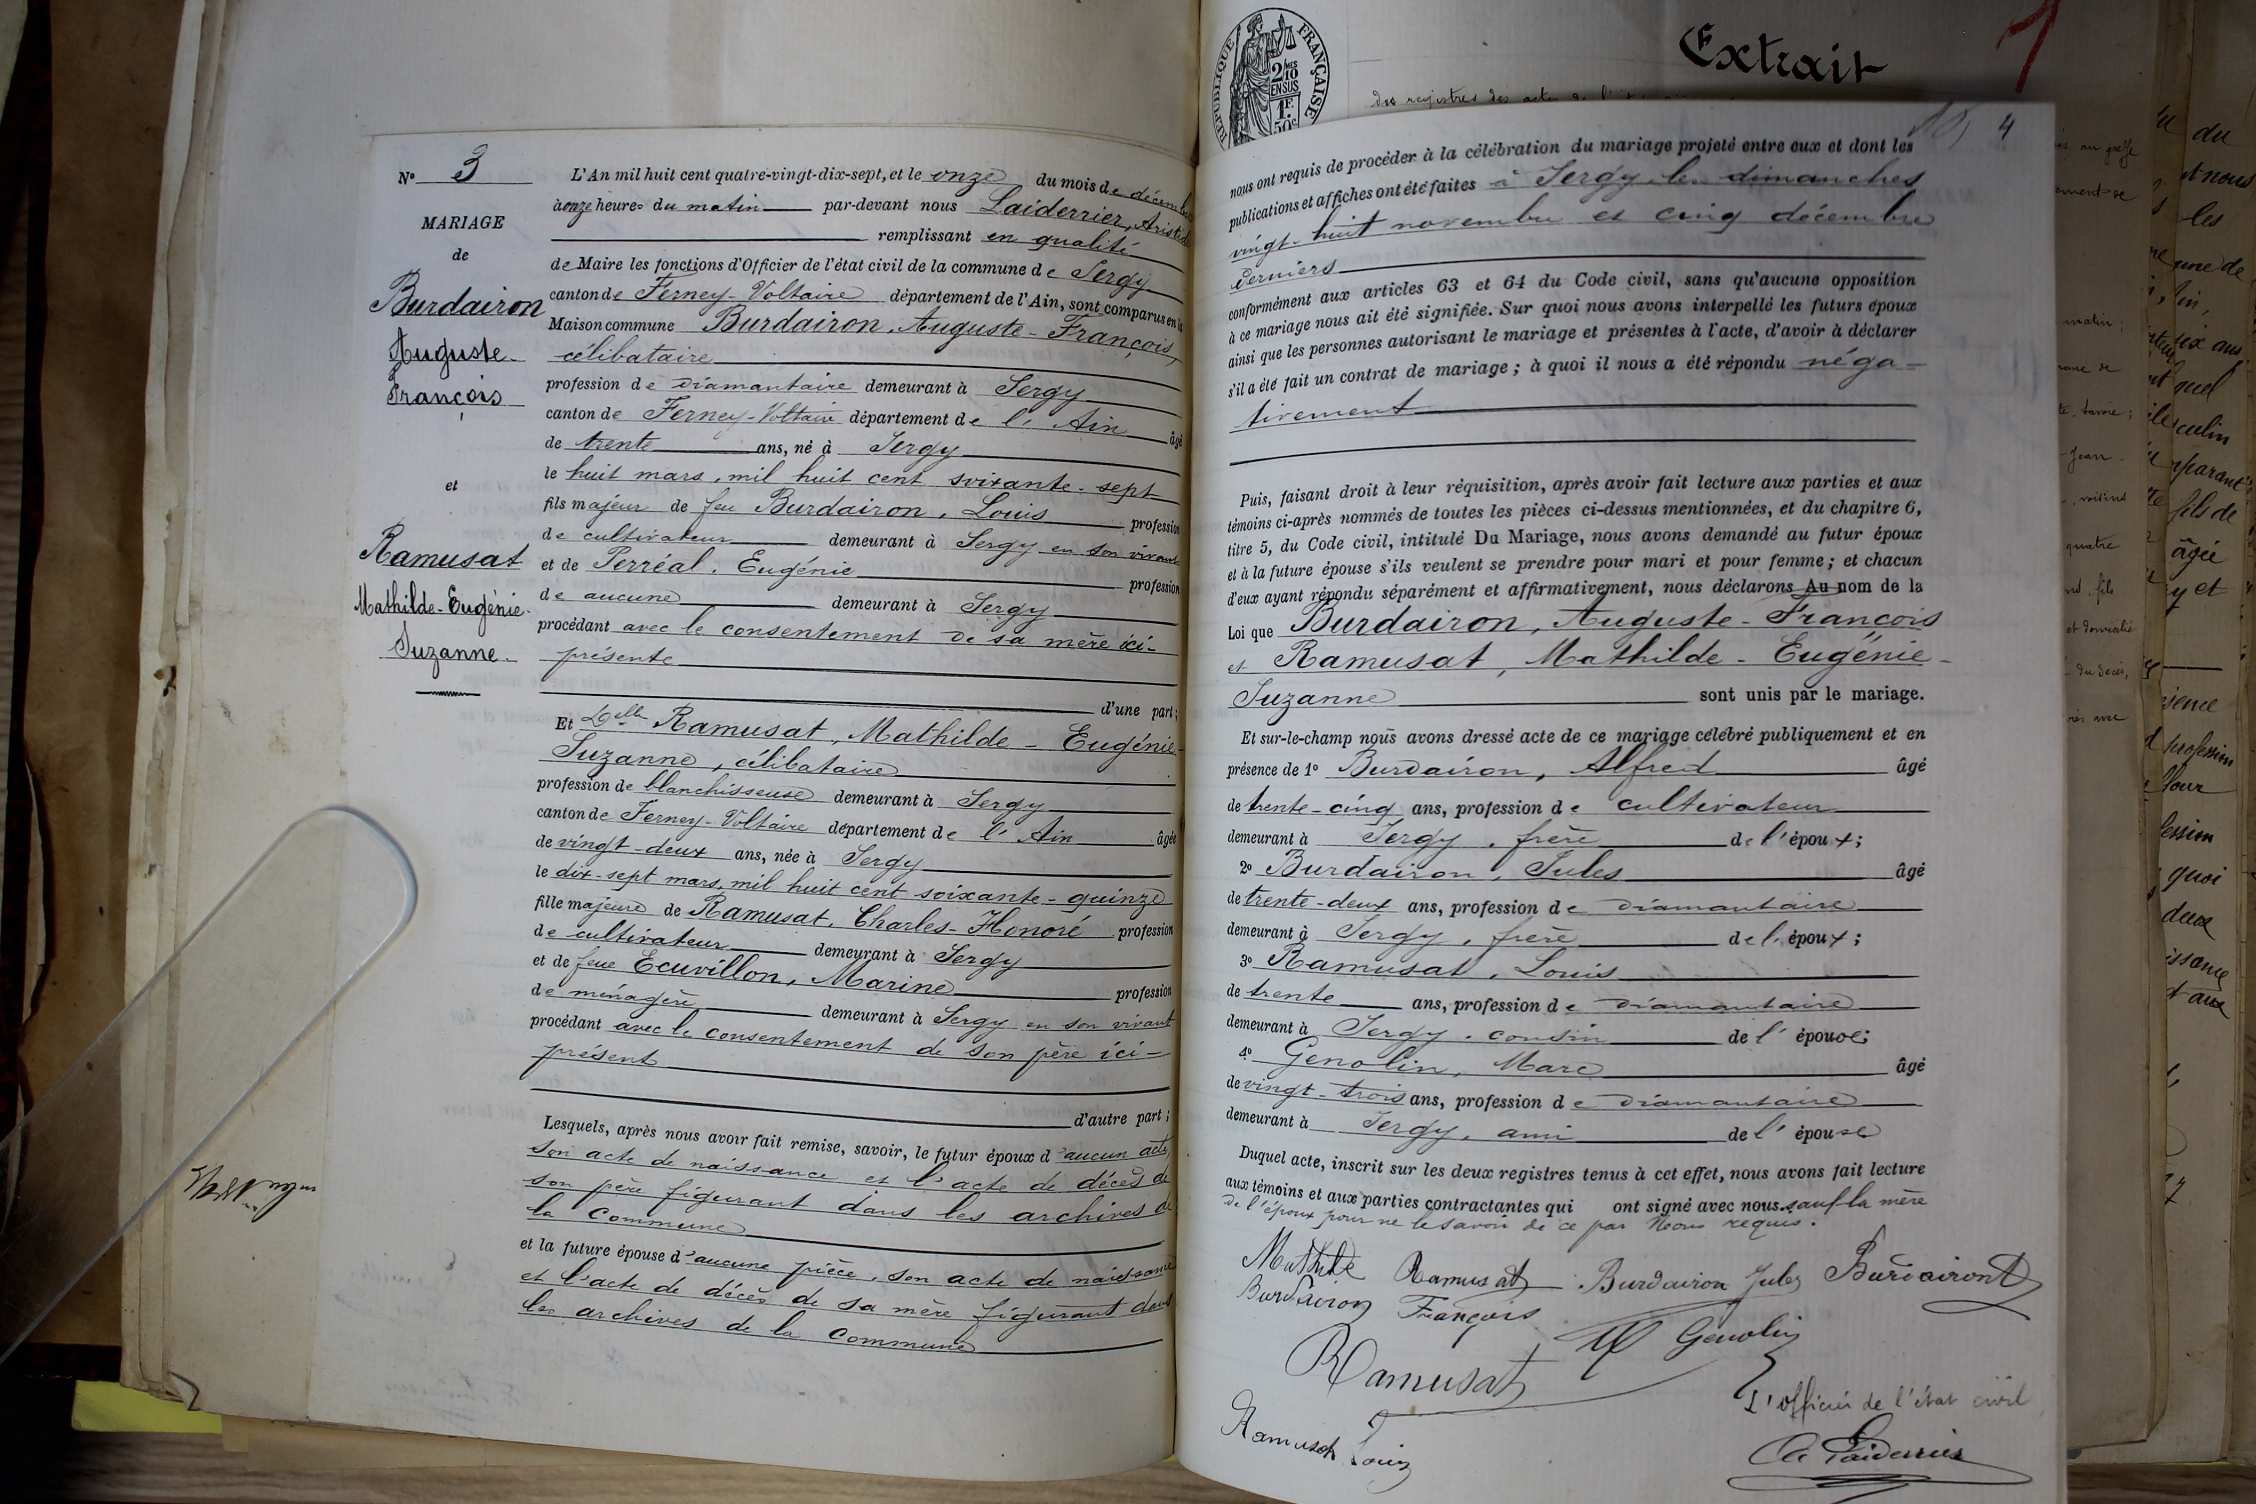 N° 3
MARIAGE
de
Burdairon
Auguste-
François
et
Ramusat
Mathilde-Eugénie-
Suzanne-
L'An mil huit cent quatre-vingt-dix-sept, et le onze du mois de décembre
à onze heures du matin par-devant nous Laiderrier, Aristide
remplissant en qualité
de Maire les fonctions d'Officier de l'état civil de la commune de Sergy
canton de Ferney-Voltaire département de l'Ain, sont comparus en la
Maison commune Burdairon, Auguste-François,
célibataire
profession de diamantaire demeurant à Sergy
canton de Ferney-Voltaire département de l'Ain âgé
de trente ans, né à Sergy
le huit mars, mil huit cent soixante-sept
fils majeur de feu Burdairon, Louis profession
de cultivateur demeurant à Sergy en son vivant
et de Perréal, Eugénie profession
de aucune demeurant à Sergy
procédant avec le consentement de sa mère ici-
présente
d'une part;
Et Delle Ramusat, Mathilde-Eugénie-
Suzanne, célibataire
profession de blanchisseuse demeurant à Sergy
canton de Ferney-Voltaire département de l'Ain âgée
de vingt-deux ans, née à Sergy
le dix-sept mars, mil huit cent soixante-quinze
fille majeure de Ramusat, Charles-Honoré profession
de cultivateur demeurant à Sergy
et de feue Ecuvillon, Marine profession
de ménagère demeurant à Sergy en son vivant
procédant avec le consentement de son père ici-
présent
d'autre part;
Lesquels, après nous avoir fait remise, savoir, le futur époux d'aucun acte,
son acte de naissance et l'acte de décès de
son père figurant dans les archives de
la commune
et la future épouse d'aucune pièce, son acte de naissance
et l'acte de décès de sa mère figurant dans
les archives de la commune
RÉPUBLIQUE FRANÇAISE
2/10 EN SUS
1F.
50c
Extrait
des registres des actes de l'
4
nous ont requis de procéder à la célébration du mariage projeté entre eux et dont les
publications et affiches ont été faites à Sergy les dimanches
vingt-huit novembre et cinq décembre
derniers
conformément aux articles 63 et 64 du Code civil, sans qu'aucune opposition
à ce mariage nous ait été signifiée. Sur quoi nous avons interpellé les futurs époux
ainsi que les personnes autorisant le mariage et présentes à l'acte, d'avoir à déclarer
s'il a été fait un contrat de mariage; à quoi il nous a été répondu néga-
tivement
Puis, faisant droit à leur réquisition, après avoir fait lecture aux parties et aux
témoins ci-après nommés de toutes les pièces ci-dessus mentionnées, et du chapitre 6,
titre 5, du Code civil, intitulé Du Mariage, nous avons demandé au futur époux
et à la future épouse s'ils veulent se prendre pour mari et pour femme; et chacun
d'eux ayant répondu séparément et affirmativement, nous déclarons Au nom de la
Loi que Burdairon, Auguste-François
et Ramusat, Mathilde-Eugénie-
Suzanne sont unis par le mariage.
Et sur-le-champ nous avons dressé acte de ce mariage célébré publiquement et en
présence de 1° Burdairon, Alfred âgé
de trente-cinq ans, profession de cultivateur
demeurant à Sergy, frère de l'époux;
2° Burdairon, Jules âgé
de trente-deux ans, profession de diamantaire
demeurant à Sergy, frère de l'époux;
3° Ramusat, Louis
de trente ans, profession de diamantaire
demeurant à Sergy, cousin de l'épouse;
4° Genolin, Marc âgé
de vingt-trois ans, profession de diamantaire
demeurant à Sergy, ami de l'épouse
Duquel acte, inscrit sur les deux registres tenus à cet effet, nous avons fait lecture
aux témoins et aux parties contractantes qui ont signé avec nous sauf la mère
de l'époux pour ne le savoir de ce par Nous requis.
Mathilde Ramusat Burdairon Jules Burdairont
Burdairon François
M Genolin
Ramusat
L'officier de l'état civil
Ramusat Louis
Laiderrier